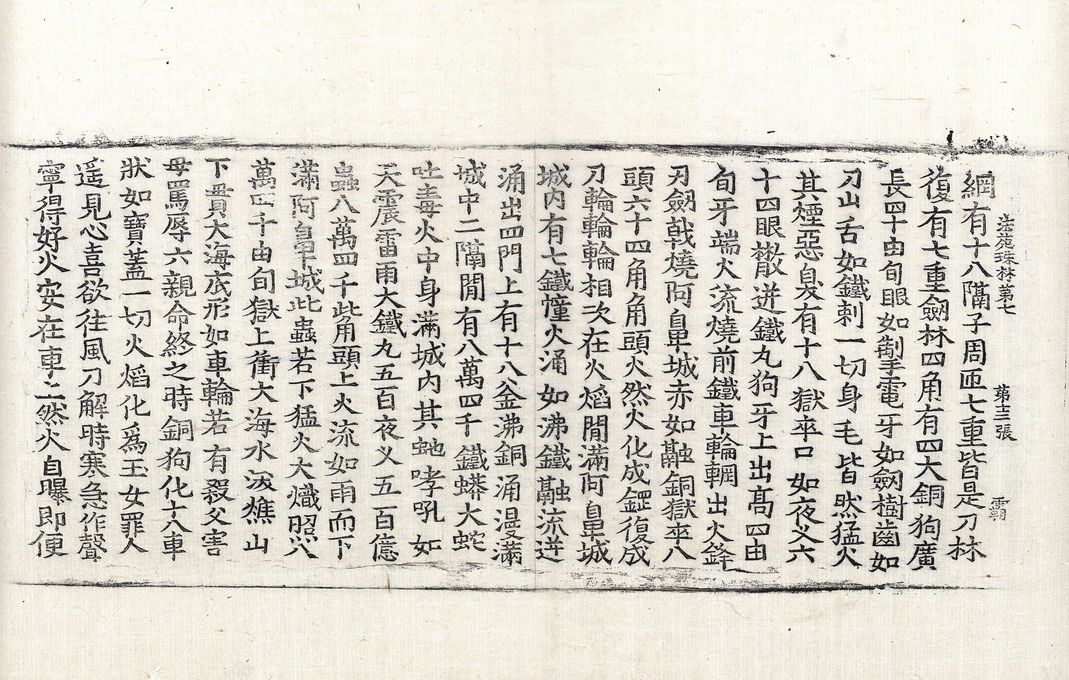 網有十八隔子周匝七重皆是刀林
法苑珠林第七 第十三張 霸
復有七重劒林四角有四大銅狗廣
長四十由旬眼如掣電牙如劒樹齒如
刀山舌如鐵刺一切身毛皆然猛火
其煙惡臭有十八獄卒口如夜叉六
十四眼散迸鐵丸狗牙上出高四由
旬牙端火流燒前鐵車輪輞出火鋒
刃劒戟燒阿鼻城赤如融銅獄卒八
頭六十四角角頭火然火化成鋼復成
刀輪輪輪相次在火焰閒滿阿鼻城
城內有七鐵幢火涌如沸鐵融流迸
涌出四門上有十八釜沸銅涌漫滿
城中二隔閒有八萬四千鐵蟒大蛇
吐毒火中身滿城內其虵哮吼如
天震雷雨大鐵丸五百夜叉五百億
蟲八萬四千觜頭上火流如雨而下
滿阿鼻城此蟲若下猛火大熾照八
萬四千由旬獄上衝大海水沃燋山
下貫大海底形如車輪若有殺父害
母罵辱六親命終之時銅狗化十八車
狀如寶蓋一切火焰化爲玉女罪人
遥見心喜欲往風刀解時寒急作聲
寧得好火安在車上然火自曝即便